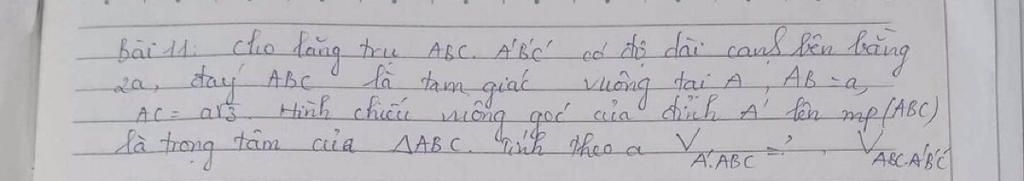 Bài 11: Cho lăng trụ ABC. A'B'C' có độ dài cạnh bên bằng
2a, đáy ABC là tam giác vuông tại A, AB = a,
AC = a√3. Hình chiếu vuông góc của đỉnh A' lên mp(ABC)
là trọng tâm của ΔABC. Tính theo a V_A'.ABC = ?, V_ABC.A'B'C'